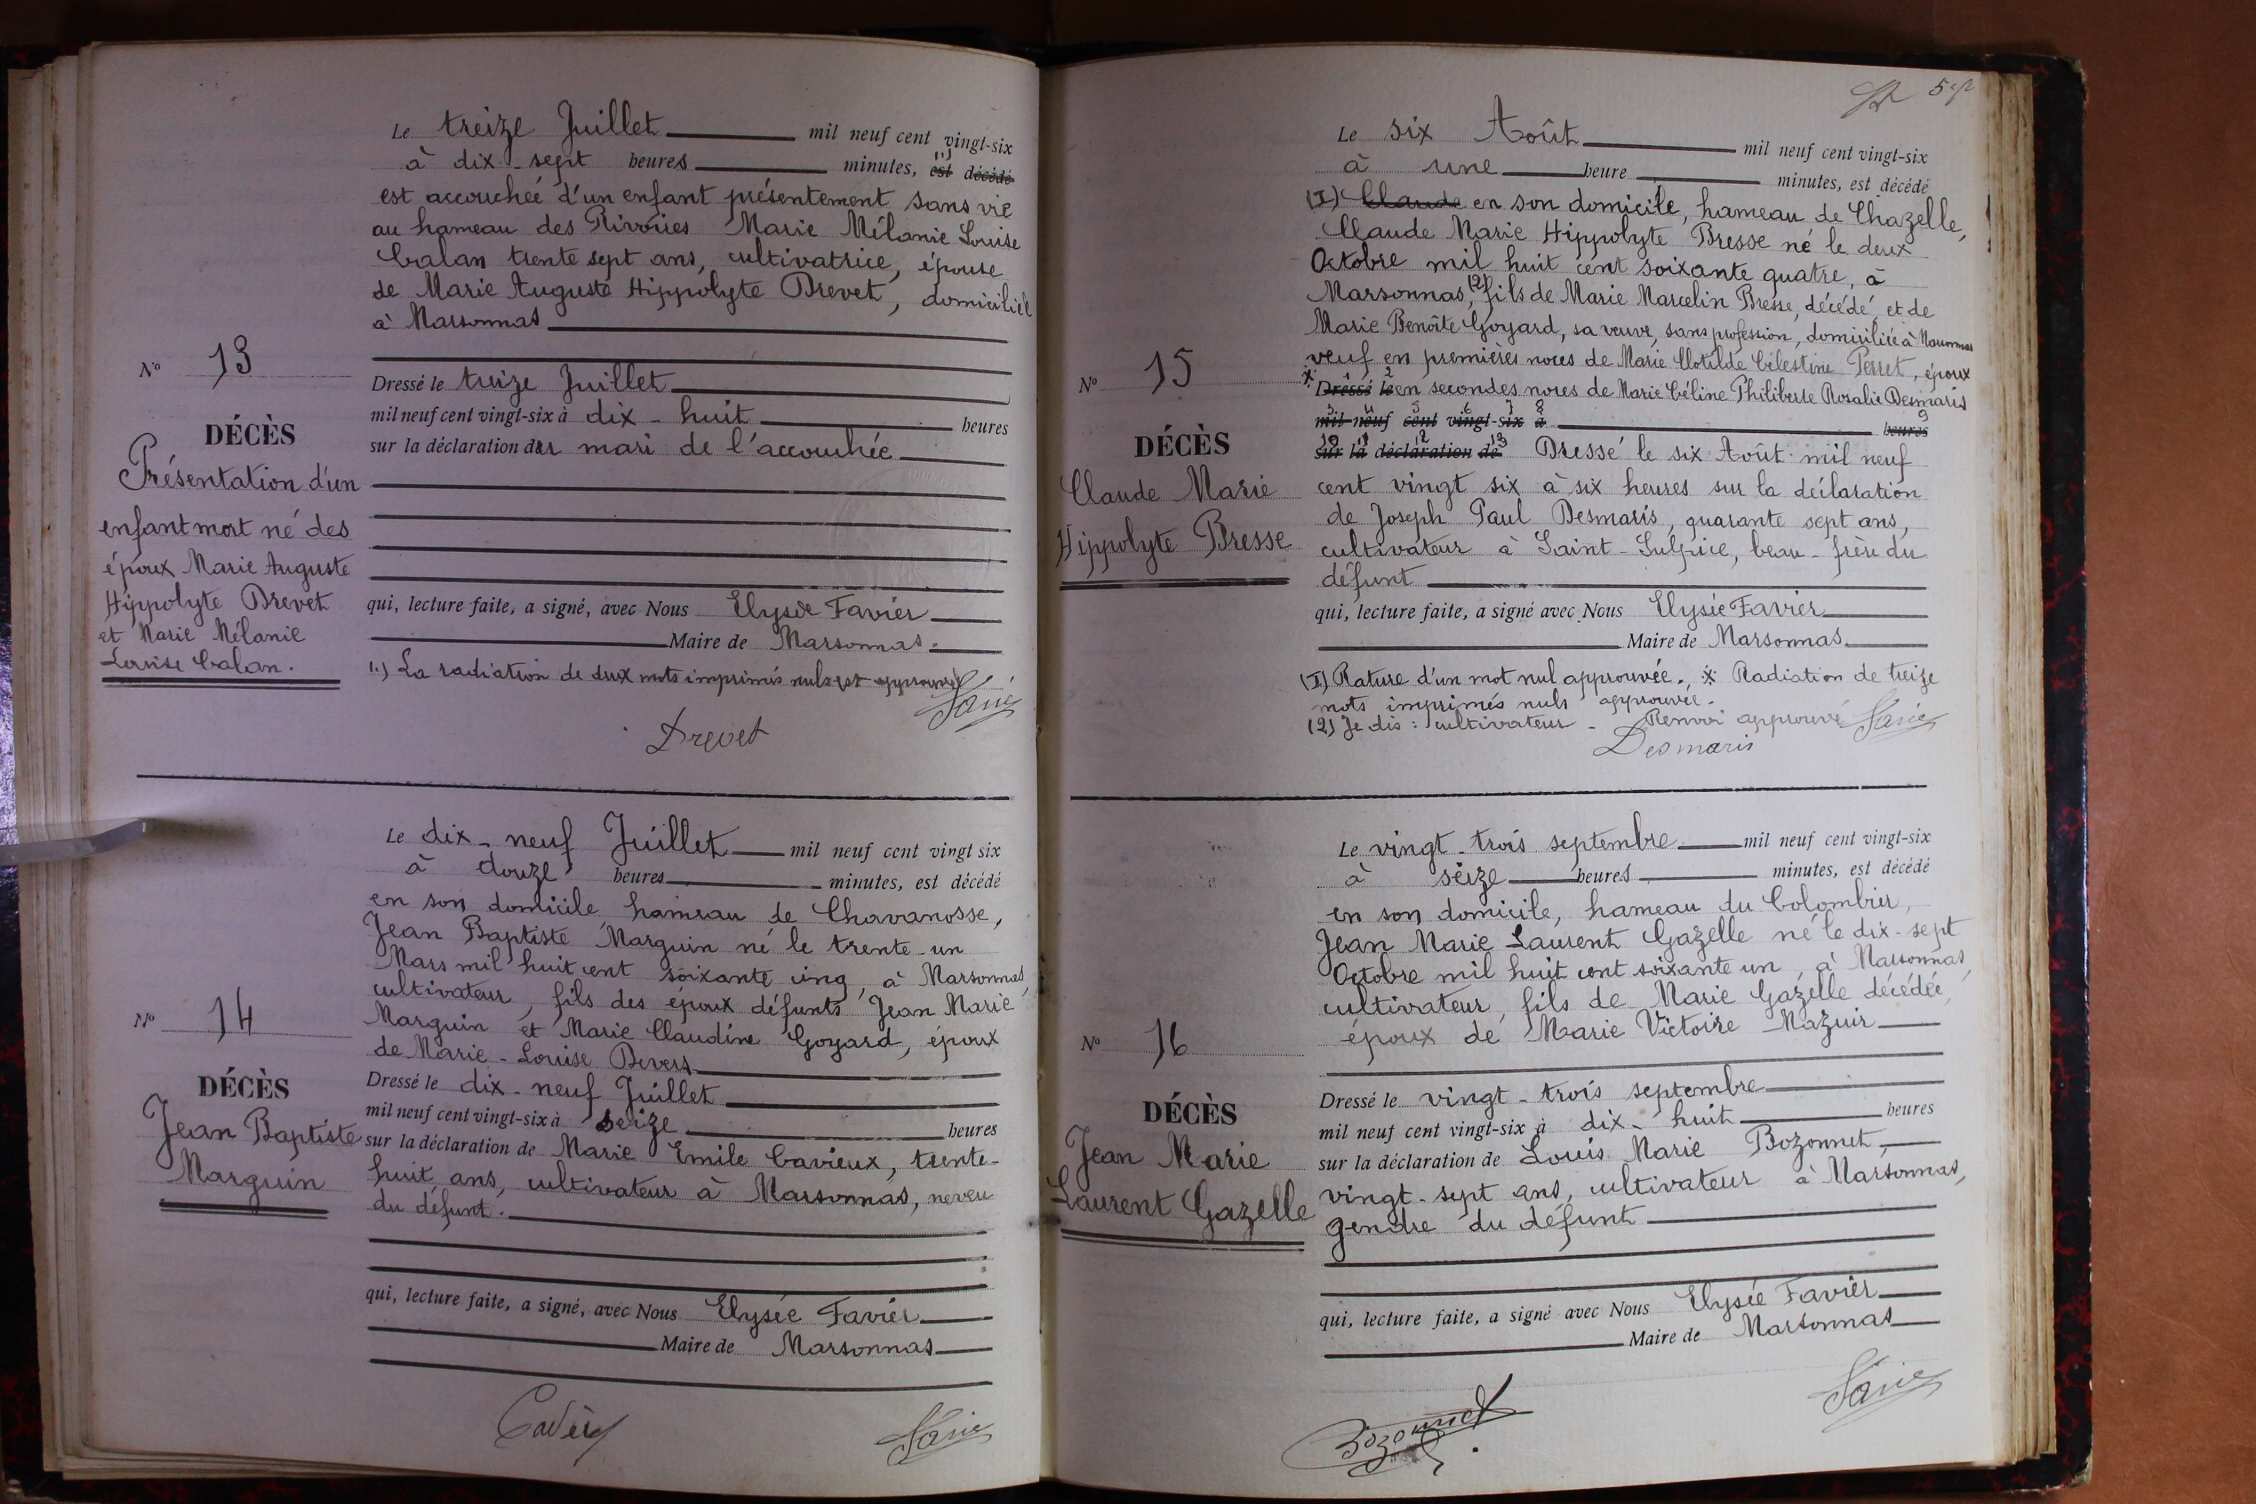 Le treize Juillet mil neuf cent vingt-six
à dix-sept heures minutes, (1) est décédé
est accouchée d'un enfant présentement sans vie
au hameau des Rivoires Marie Mélanie Louise
Calan trente sept ans, cultivatrice, épouse
de Marie Auguste Hippolyte Drevet, domiciliée
à Marsonnas
N° 13
Dressé le treize Juillet
mil neuf cent vingt-six à dix-huit heures
DÉCÈS
sur la déclaration du mari de l'accouchée
Présentation d'un
enfant mort né des
époux Marie Auguste
Hippolyte Drevet
et Marie Mélanie
Louise Calan.
qui, lecture faite, a signé, avec Nous Elysée Favier
Maire de Marsonnas.
(1) La radiation de deux mots imprimés nuls est approuvée
Drevet
Le dix-neuf Juillet mil neuf cent vingt six
à douze heures minutes, est décédé
en son domicile hameau de Chavanosse,
Jean Baptiste Marguin né le trente-un
Mars mil huit cent soixante cinq, à Marsonnas,
cultivateur, fils des époux défunts Jean Marie
Marguin et Marie Claudine Goyard, époux
de Marie-Louise Devers
N° 14
DÉCÈS
Jean Baptiste
Marguin
Dressé le dix-neuf Juillet
mil neuf cent vingt-six à seize heures
sur la déclaration de Marie Emile Cavieux, trente-
huit ans, cultivateur à Marsonnas, neveu
du défunt.
qui, lecture faite, a signé, avec Nous Elysée Favier
Maire de Marsonnas
Le six Août mil neuf cent vingt-six
à une heure minutes, est décédé
(I) Claude en son domicile, hameau de Chazelle,
Claude Marie Hippolyte Bresse né le deux
Octobre mil huit cent soixante quatre, à
Marsonnas, (2) fils de Marie Marcelin Bresse, décédé, et de
Marie Benoîte Goyard, sa veuve, sans profession, domiciliée à Marsonnas
veuf en premières noces de Marie Clotilde Célestine Perret, époux
N° 15
Dressé le en secondes noces de Marie Céline Philiberte Rosalie Desmaris
mil neuf cent vingt-six à heures
DÉCÈS
Claude Marie
Hippolyte Bresse
sur la déclaration de Dressé le six Août mil neuf
cent vingt six à six heures sur la déclaration
de Joseph Paul Desmaris, quarante sept ans,
cultivateur à Saint-Sulpice, beau-frère du
défunt
qui, lecture faite, a signé avec Nous Elysée Favier
Maire de Marsonnas
(I) Rature d'un mot nul approuvée. * Radiation de treize
mots imprimés nuls approuvée.
(2) Je dis : cultivateur - Renvoi approuvé
Desmaris
Le vingt-trois septembre mil neuf cent vingt-six
à seize heures minutes, est décédé
en son domicile, hameau du Colombier,
Jean Marie Laurent Gazelle né le dix-sept
Octobre mil huit cent soixante un, à Marsonnas,
cultivateur, fils de Marie Gazelle décédée,
époux de Marie Victoire Mazuir
N° 16
DÉCÈS
Jean Marie
Laurent Gazelle
Dressé le vingt-trois septembre
mil neuf cent vingt-six à dix-huit heures
sur la déclaration de Louis Marie Bozonnet,
vingt-sept ans, cultivateur à Marsonnas,
gendre du défunt
qui, lecture faite, a signé avec Nous Elysée Favier
Maire de Marsonnas
Bozonnet